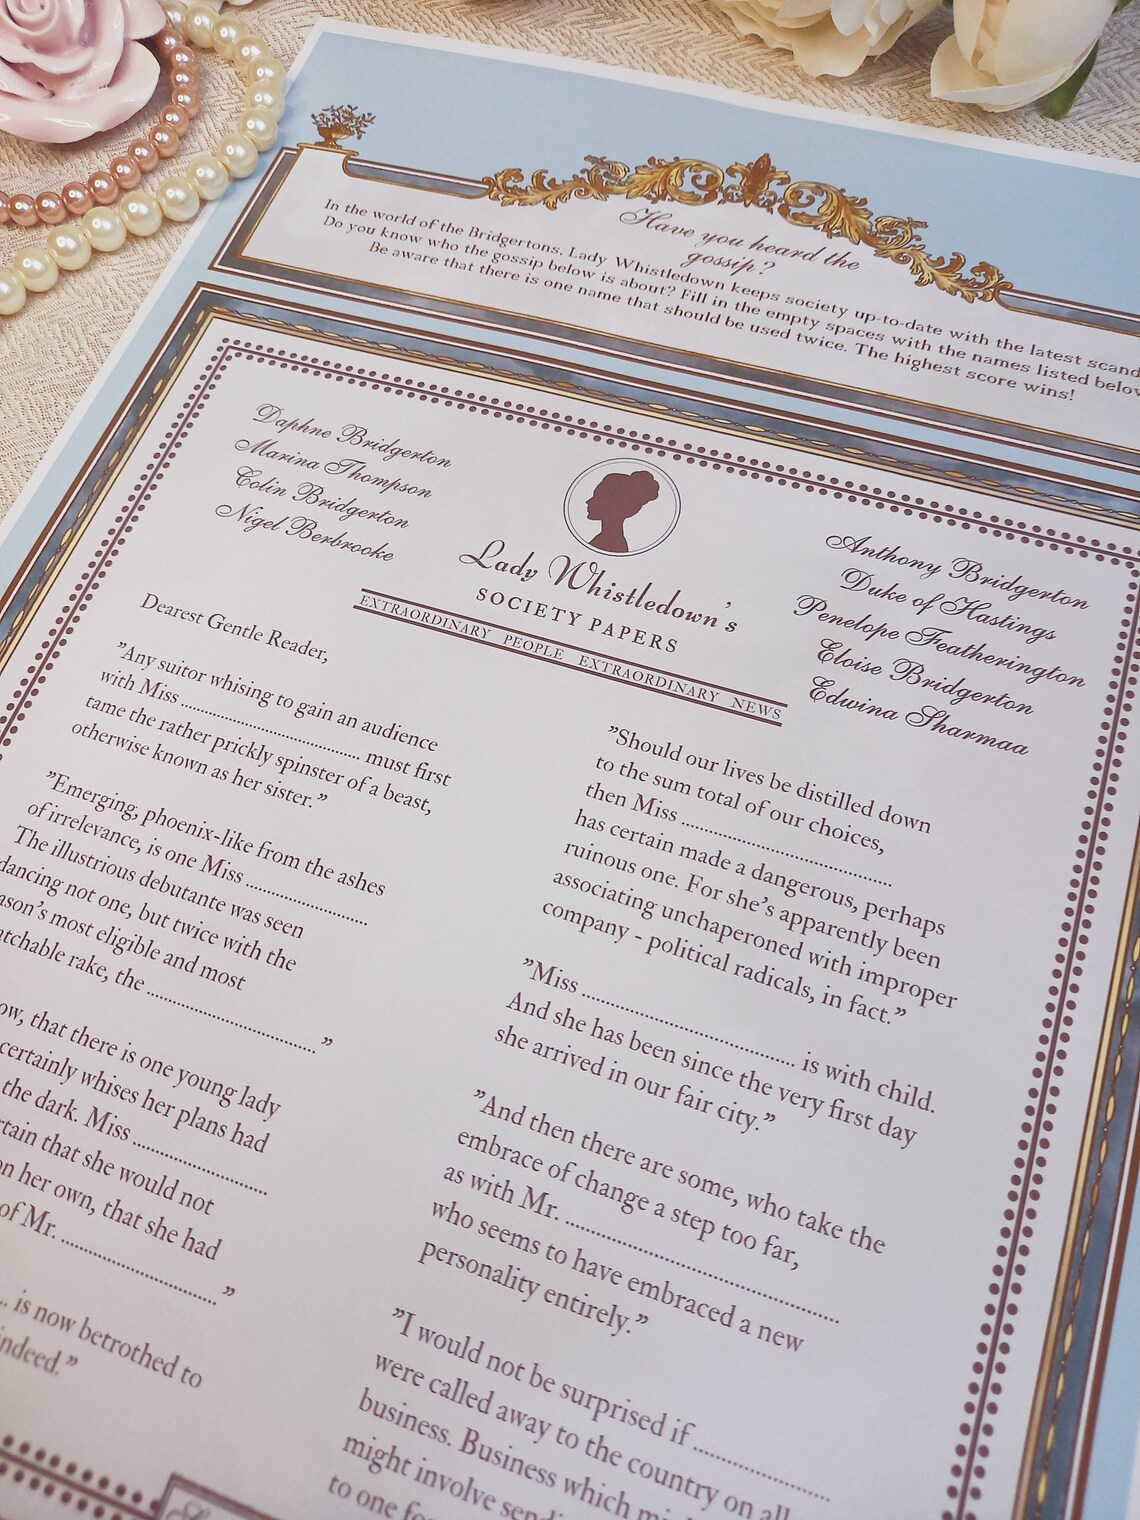 Have you heard the
gossip?
In the world of the Bridgertons, Lady Whistledown keeps society up-to-date with the latest scand
Do you know who the gossip below is about? Fill in the empty spaces with the names listed below
Be aware that there is one name that should be used twice. The highest score wins!
Daphne Bridgerton
Marina Thompson
Colin Bridgerton
Nigel Berbrooke
Lady Whistledown's
SOCIETY PAPERS
EXTRAORDINARY PEOPLE EXTRAORDINARY NEWS
Anthony Bridgerton
Duke of Hastings
Penelope Featherington
Eloise Bridgerton
Edwina Sharmaa
Dearest Gentle Reader,
"Any suitor whising to gain an audience
with Miss .......................................... must first
tame the rather prickly spinster of a beast,
otherwise known as her sister."
"Emerging, phoenix-like from the ashes
of irrelevance, is one Miss ............................
The illustrious debutante was seen
dancing not one, but twice with the
ason's most eligible and most
atchable rake, the ........................................ "
ow, that there is one young lady
certainly whises her plans had
the dark. Miss ..............................
tain that she would not
on her own, that she had
of Mr. ..................................... "
.. is now betrothed to
indeed."
"Should our lives be distilled down
to the sum total of our choices,
then Miss ..................................................
has certain made a dangerous, perhaps
ruinous one. For she's apparently been
associating unchaperoned with improper
company - political radicals, in fact."
"Miss .................................................. is with child.
And she has been since the very first day
she arrived in our fair city."
"And then there are some, who take the
embrace of change a step too far,
as with Mr. ............................................................
who seems to have embraced a new
personality entirely."
"I would not be surprised if ..............................
were called away to the country on all
business. Business which mi
might involve sendi
to one fo